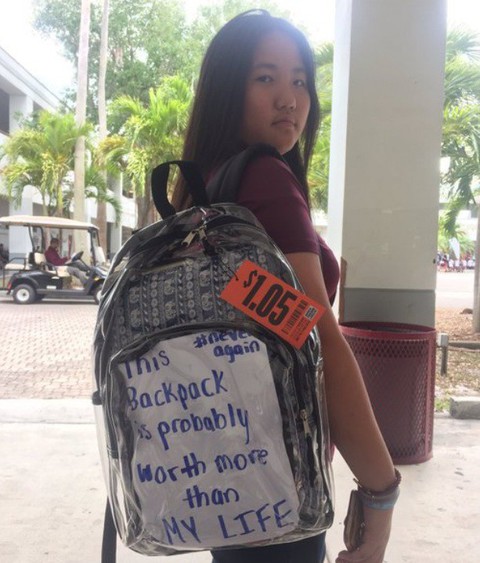 $1.05
#never
again
This
Backpack
is probably
worth more
than
MY LIFE